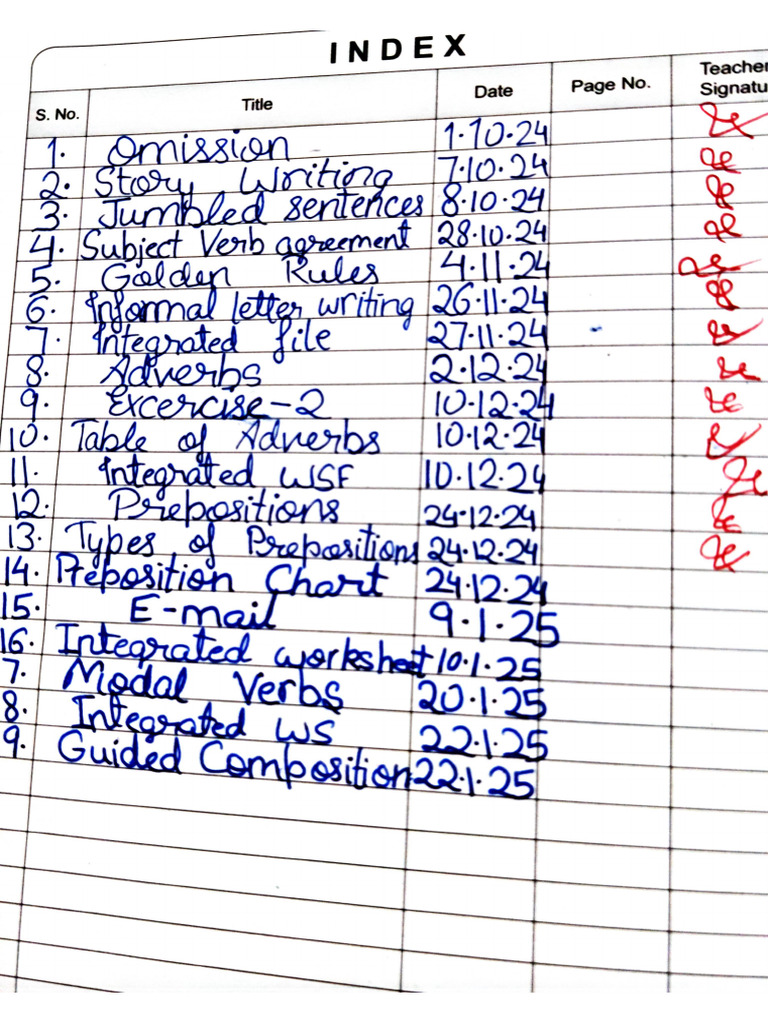 INDEX
S. No. Title Date Page No. Teacher Signatu
1. Omission 1.10.24
2. Story Writing 7.10.24
3. Jumbled sentences 8.10.24
4. Subject Verb agreement 28.10.24
5. Golden Rules 4.11.24
6. Informal letter writing 26.11.24
7. Integrated file 27.11.24
8. Adverbs 2.12.24
9. Excercise-2 10.12.24
10. Table of Adverbs 10.12.24
11. Integrated WSF 10.12.24
12. Prepositions 24.12.24
13. Types of Prepositions 24.12.24
14. Preposition Chart 24.12.24
15. E-mail 9.1.25
16. Integrated worksheet 10.1.25
7. Modal Verbs 20.1.25
8. Integrated WS 22.1.25
9. Guided Composition 22.1.25